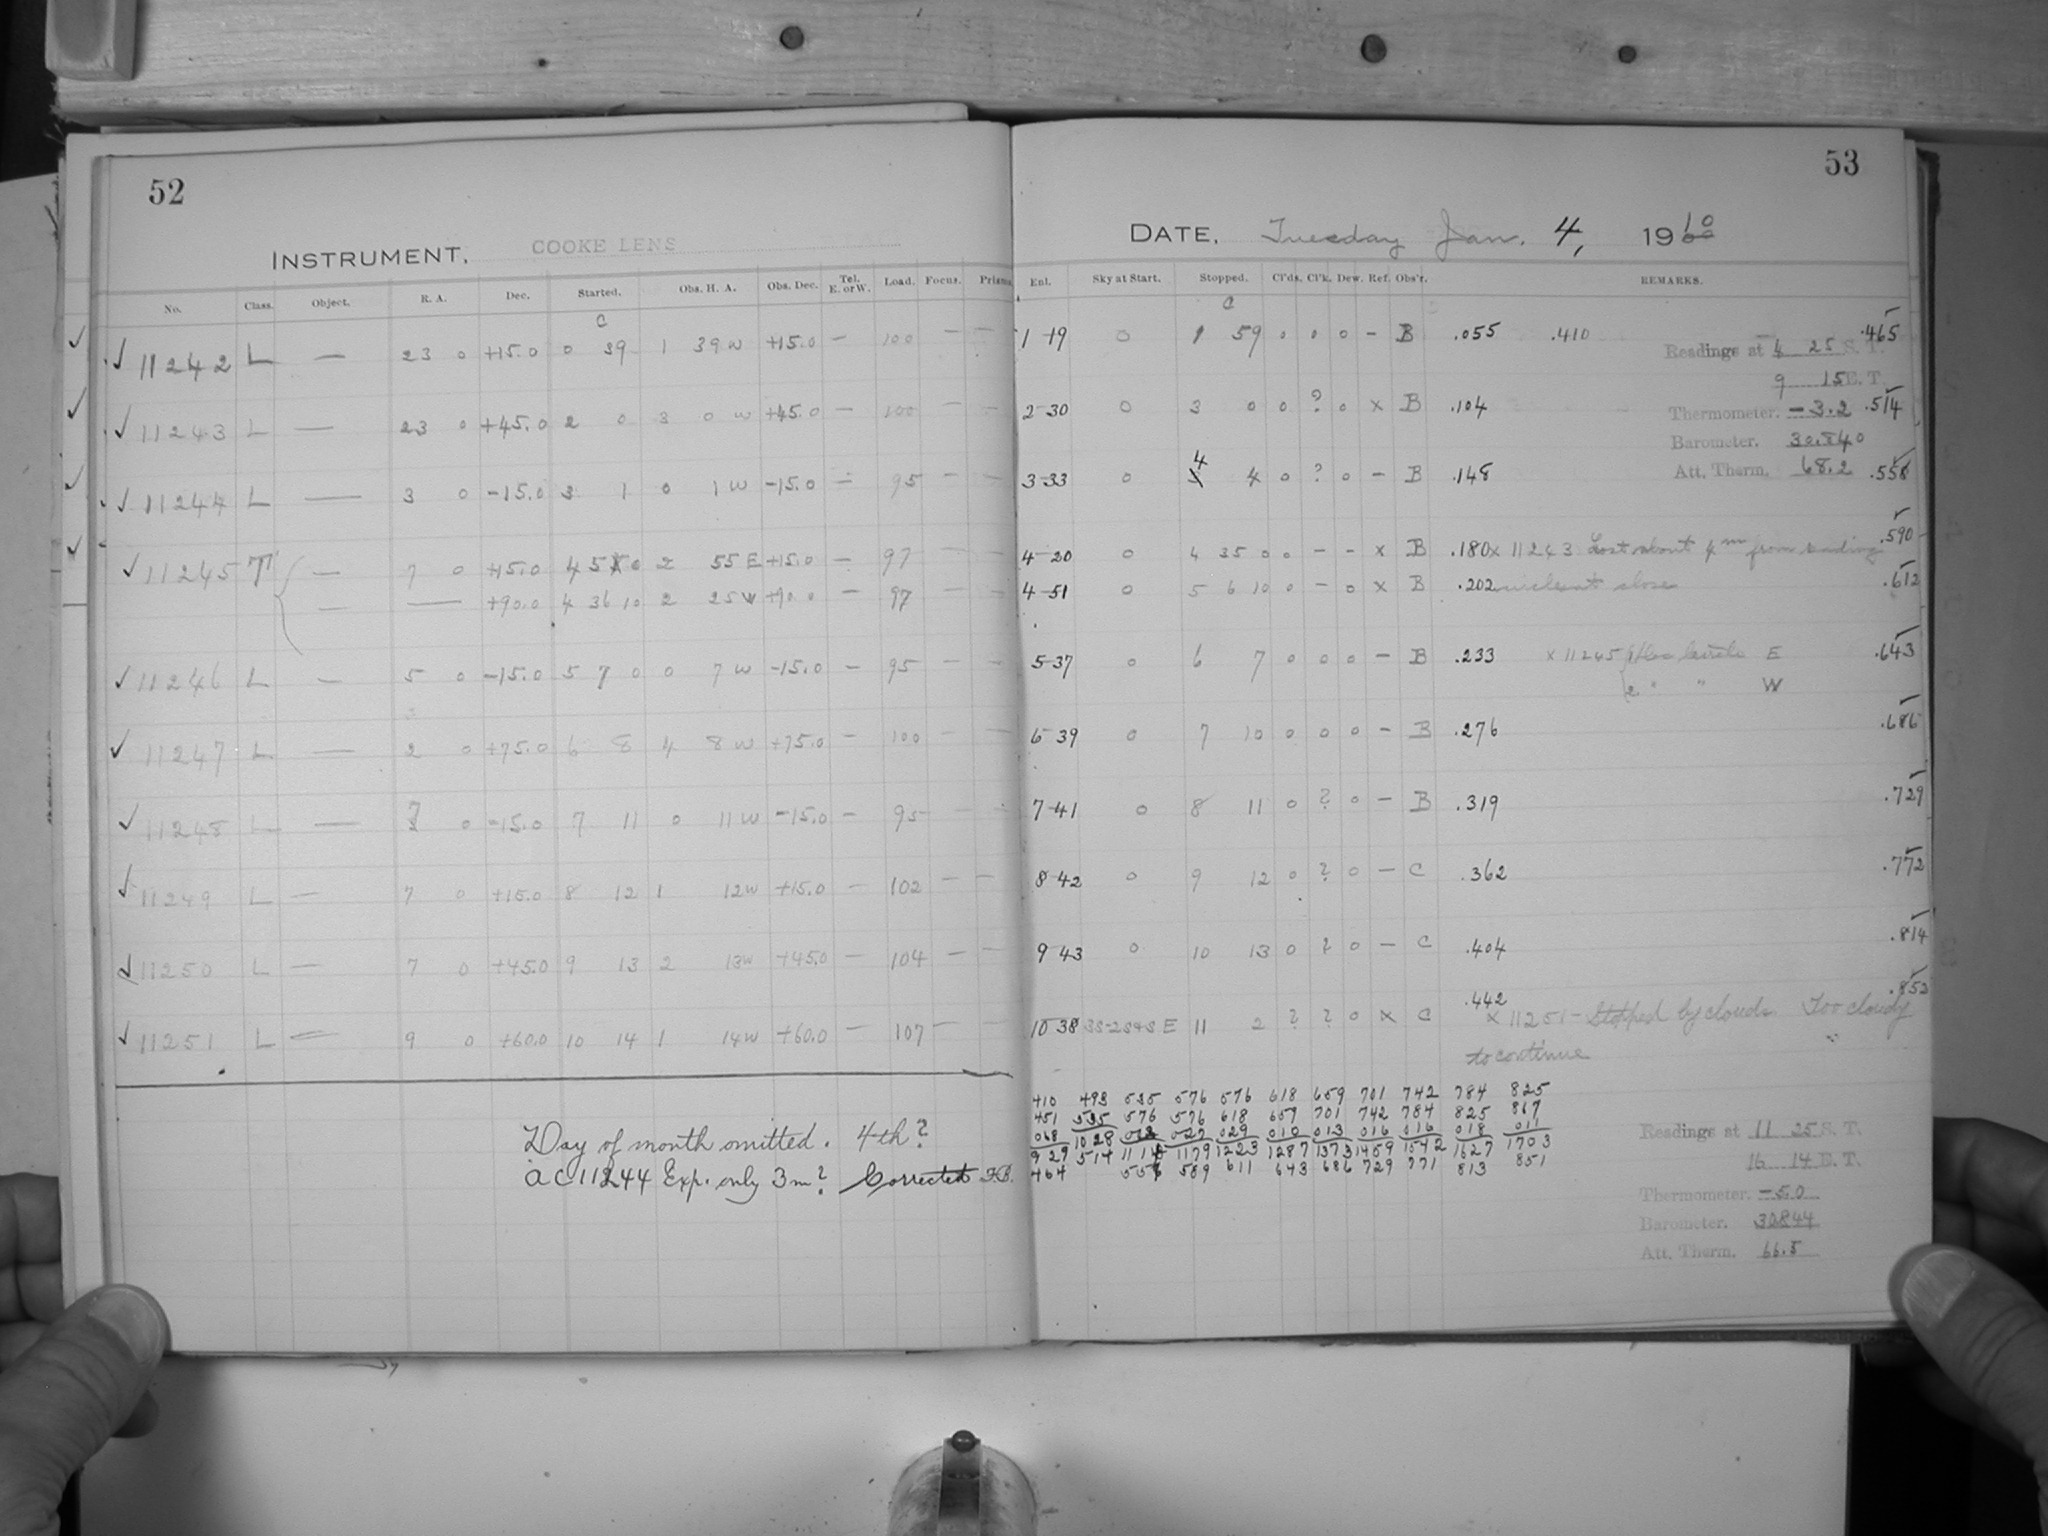 52
INSTRUMENT, COOKE LENS
No. Class. Object. R. A. Dec. Started. Obs. H. A. Obs. Dec. Tel. E. or W. Load. Focus. Prisms.
C
√ 11242 L — 23 0 +15.0 0 39 1 39 W +15.0 — 100 — —
√ 11243 L — 23 0 +45.0 2 0 3 0 W +45.0 — 100 — —
√ 11244 L — 3 0 -15.0 3 1 0 1 W -15.0 — 95 — —
√ 11245 T — 7 0 +15.0 4 5 0 2 55 E +15.0 — 97 — —
— — +90.0 4 36 10 2 25 W +90.0 — 97 — —
√ 11246 L — 5 0 -15.0 5 7 0 0 7 W -15.0 — 95 — —
√ 11247 L — 2 0 +75.0 6 8 4 8 W +75.0 — 100 — —
√ 11248 L — 7 0 -15.0 7 11 0 11 W -15.0 — 95 — —
√ 11249 L — 7 0 +15.0 8 12 1 12 W +15.0 — 102 — —
√ 11250 L — 7 0 +45.0 9 13 2 13 W +45.0 — 104 — —
√ 11251 L — 9 0 +60.0 10 14 1 14 W +60.0 — 107 — —
Day of month omitted. 4th?
AC 11244 Exp. only 3m? Corrected
53
DATE, Tuesday Jan. 4, 1910
Enl. Sky at Start. Stopped. Cl'ds. Cl'k. Dew. Ref. Obs'r. REMARKS.
C
1-19 0 1 59 0 0 0 — B .055 .410 .465
Readings at 4 25 S. T.
9 15 E. T.
2-30 0 3 0 0 ? 0 x B .104 Thermometer. -3.2 .514
Barometer. 30.840
3-33 0 4 4 0 ? 0 — B .148 Att. Therm. 68.2 .558
4-20 0 4 35 0 0 — — x B .180 x 11243 Lost about 4m from winding .590
4-51 0 5 6 10 0 — 0 x B .202 close .612
5-37 0 6 7 0 0 0 — B .233 x 11245 E .643
2 " " W
6-39 0 7 10 0 0 0 — B .276 .686
7-41 0 8 11 0 ? 0 — B .319 .729
8-42 0 9 12 0 ? 0 — C .362 .772
9 43 0 10 13 0 ? 0 — C .404 .814
10-38 E 11 2 ? ? 0 x C .442 .852
x 11251 - Stopped by clouds. Too cloudy
to continue
410 493 535 576 576 618 659 701 742 784 825
451 535 576 576 618 659 701 742 784 825 867
068 1028 013 027 029 010 013 016 016 018 011
929 514 1114 1179 1223 1287 1373 1459 1542 1627 1703
464 557 589 611 643 686 729 771 813 851
Readings at 11 25 S. T.
16 14 E. T.
Thermometer. -5.0
Barometer. 30.844
Att. Therm. 66.5